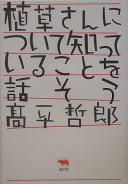 植草さんに
ついて知って
いることを
話そう
高平哲郎
晶文社